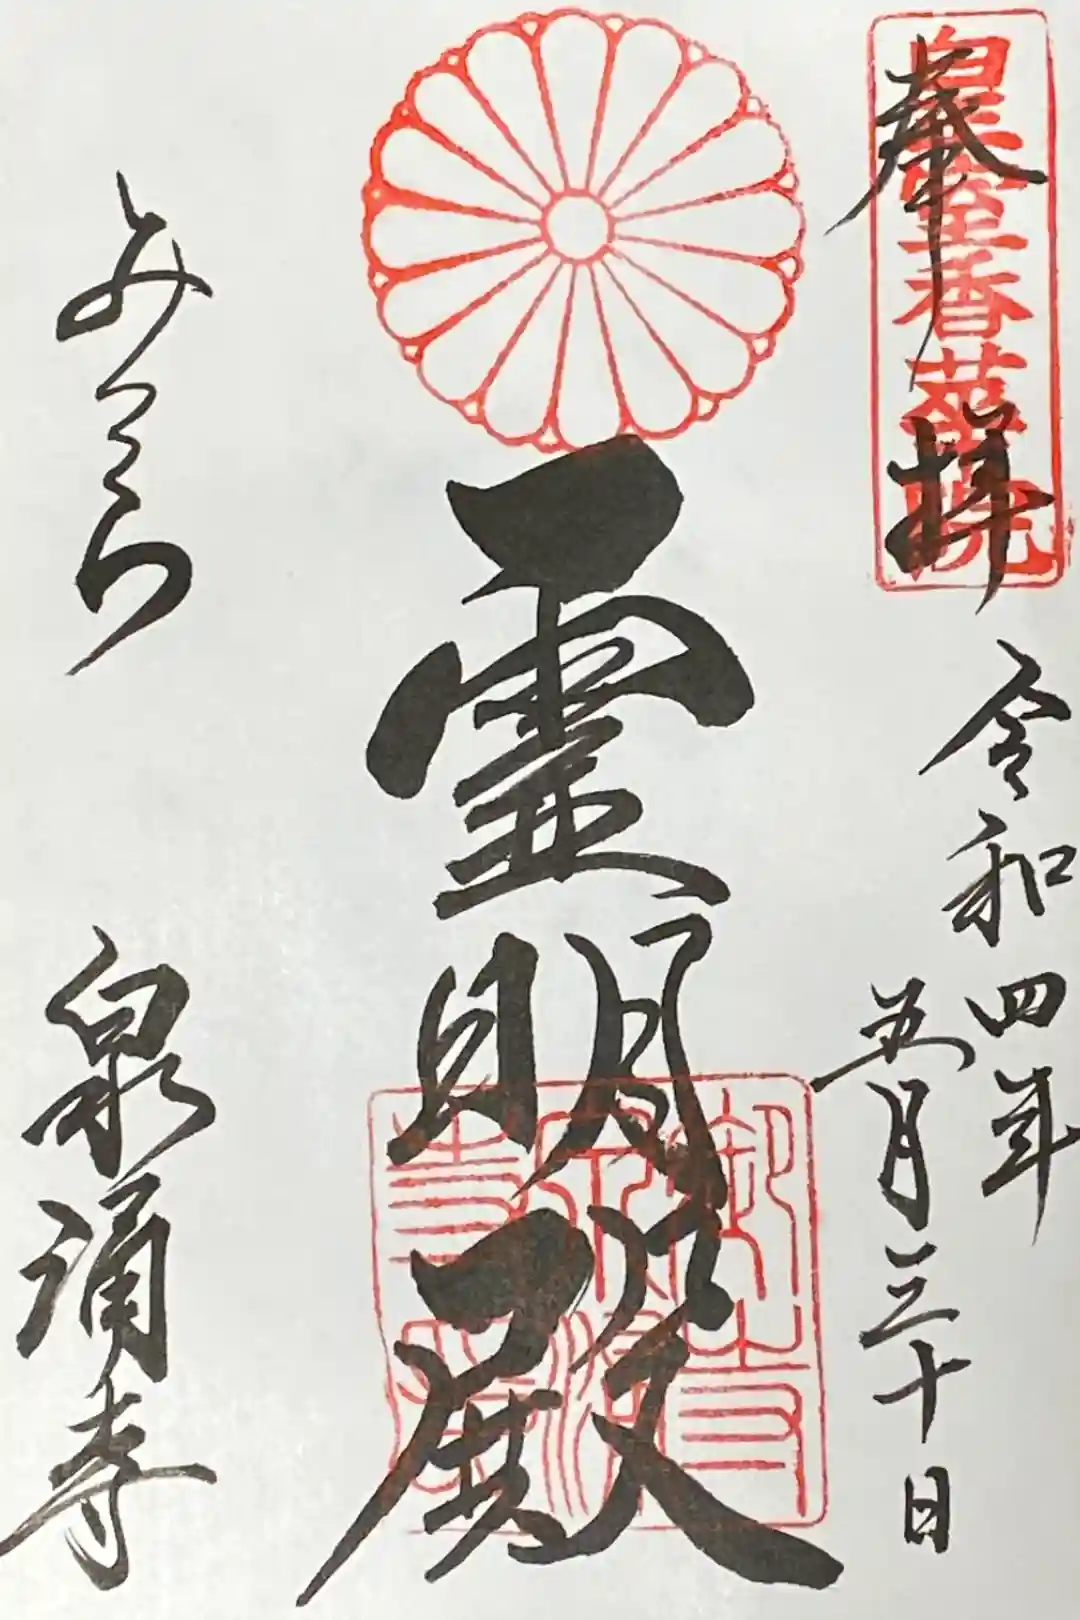 皇室香華院
奉拝
令和四年
五月三十日
霊明殿
御寺泉涌寺印
みてら
泉涌寺